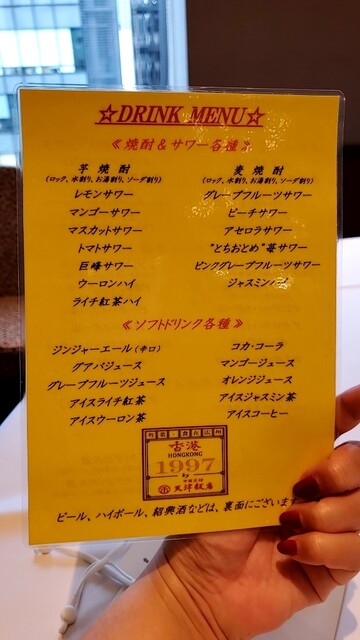 ☆DRINK MENU☆
≪焼酎＆サワー各種≫
芋 焼 酎
(ロック、水割り、お湯割り、ソーダ割り)
麦 焼 酎
(ロック、水割り、お湯割り、ソーダ割り)
レモンサワー
グレープフルーツサワー
マンゴーサワー
ピーチサワー
マスカットサワー
アセロラサワー
トマトサワー
"とちおとめ"苺サワー
巨峰サワー
ピンクグレープフルーツサワー
ウーロンハイ
ジャスミンハイ
ライチ紅茶ハイ
≪ソフトドリンク各種≫
ジンジャーエール（辛口）
コカ・コーラ
グアバジュース
マンゴージュース
グレープフルーツジュース
オレンジジュース
アイスライチ紅茶
アイスジャスミン茶
アイスウーロン茶
アイスコーヒー
香港
HONGKONG
1997
by
天津飯店
ビール、ハイボール、紹興酒などは、裏面にございます